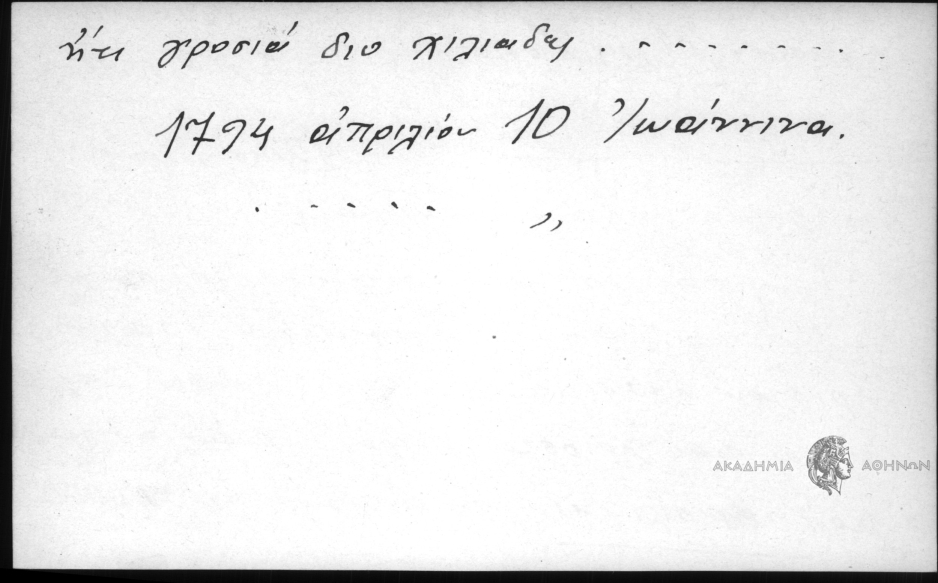 ἤτι γροσιά διο χιλιαδες . - - - - - - .
1794 ἀπριλίου 10 Ἰωάννινα.
. - - - - „
ΑΚΑΔΗΜΙΑ ΑΘΗΝΩΝ